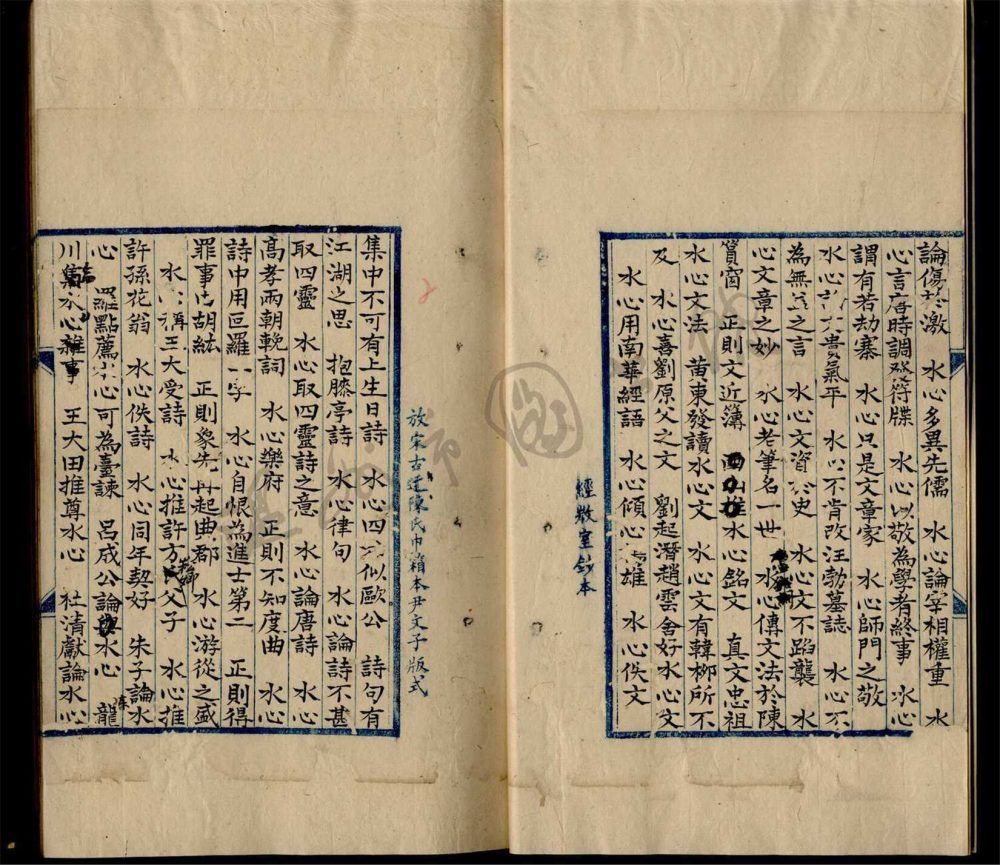 論傷於激　水心多異先儒　水心論宰相權重　水
心言唐時調發符牒　水心以敬為學者終事　水心
謂有若劫寨　水心只是文章家　水心師門之敬
水心文貴氣平　水心不肯改汪勃墓誌　水心不
為無益之言　水心文資於史　水心文不蹈襲　水
心文章之妙　水心老筆名一世　水心傳文法於陳
篔窗　正則文近簿　西山推水心銘文　真文忠祖
水心文法　黄東發讀水心文　水心文有韓柳所不
及　水心喜劉原父之文　劉起潛趙雲舍好水心文
水心用南華經語　水心傾心雄　水心佚文
經敂室鈔本
放宋古迂陳氏巾箱本尹文子版式
集中不可有上生日詩　水心四六似歐公　詩句有
江湖之思　抱膝亭詩　水心律句　水心論詩不甚
取四靈　水心取四靈詩之意　水心論唐詩　水心
高孝兩朝輓詞　水心樂府　正則不知度曲　水心
詩中用叵羅一字　水心自恨為進士第二　正則得
罪事由胡紘　正則象先再起典郡　水心游從之盛
水心稱王大受詩　水心推許方氏父子　水心推
許孫花翁　水心佚詩　水心同年契好　朱子論水
心　羅點薦水心可為臺諫　呂成公論水心　龍
川集水心雜事　王大田推尊水心　杜清獻論水心